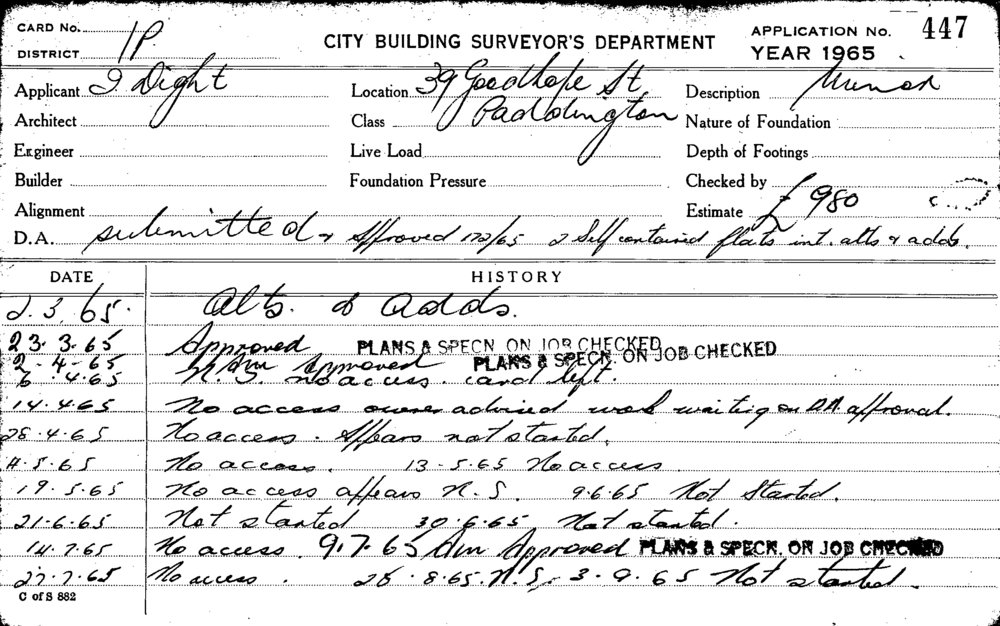 CARD No. 1P
CITY BUILDING SURVEYOR'S DEPARTMENT
APPLICATION No. 447
DISTRICT
YEAR 1965
Applicant I Dight Location 39 Goodhope St Description
Architect Class Paddington Nature of Foundation
Engineer Live Load Depth of Footings
Builder Foundation Pressure Checked by
Alignment Estimate £980
D.A. submitted & Approved 172/65 2 Self contained flats int. alts & adds.
DATE HISTORY
2.3.65. Alts. & Adds.
23.3.65 Approved PLANS & SPECN. ON JOB CHECKED
2-4-65 Am Approved PLANS & SPECN. ON JOB CHECKED
6.4.65 N.S. no access. card left.
14.4.65 No access owner advised work waiting on D.A. approval.
28.4.65 No access. Appears not started.
4.5.65 No access. 13-5.65 No access
19.5.65 No access appears N.S. 9.6.65 Not Started.
21.6.65 Not started 30.6.65 Not started.
14.7.65 No access. 9.7.65 Am Approved PLANS & SPECN. ON JOB CHECKED
27.7.65 No access. 26.8.65. N.S. 3.9.65 Not started.
C of S 882